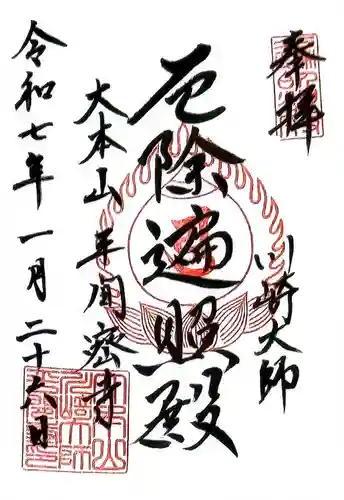 奉拝
川崎大師
厄除遍照殿
大本山 平間寺
令和七年一月二十六日